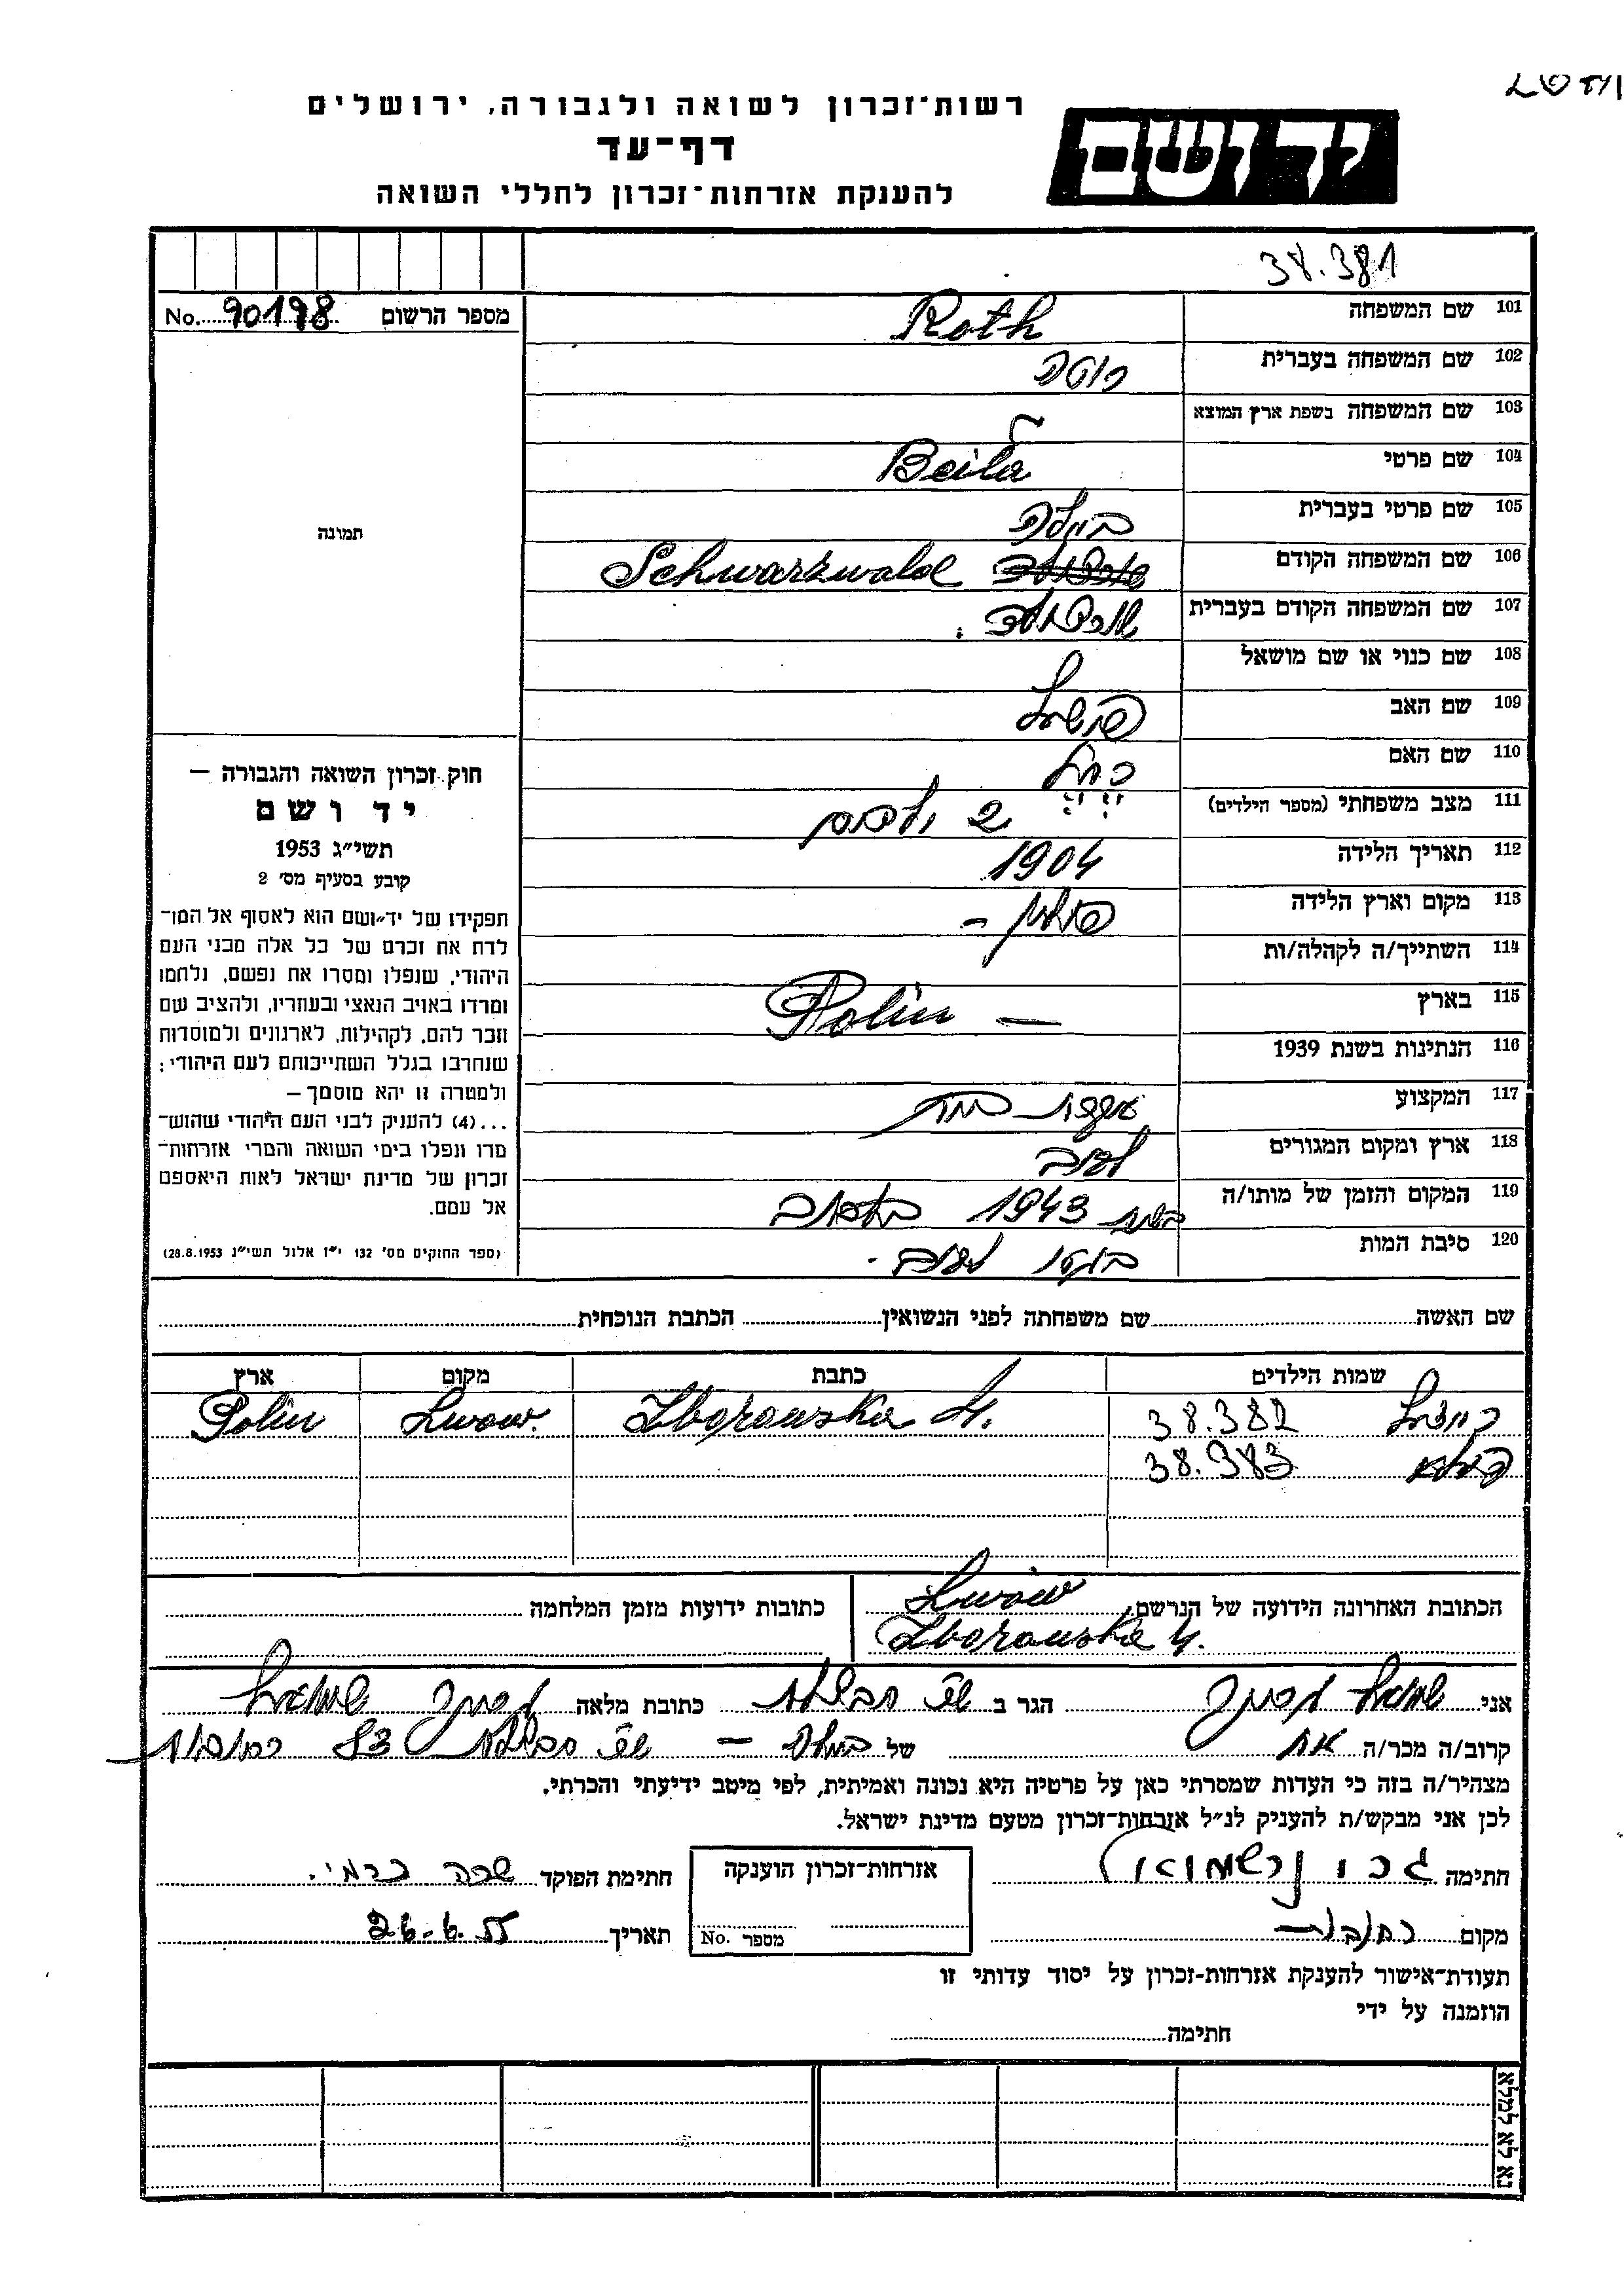 רשות־זכרון לשואה ולגבורה, ירושלים
דף־עד
להענקת אזרחות־זכרון לחללי השואה
יד ושם
38.381
מספר הרשום No. 90198
101 שם המשפחה Roth
102 שם המשפחה בעברית
103 שם המשפחה בשפת ארץ המוצא
104 שם פרטי Beila
105 שם פרטי בעברית ביילה
106 שם המשפחה הקודם Schwarzwald
107 שם המשפחה הקודם בעברית
108 שם כנוי או שם מושאל
109 שם האב
110 שם האם רחל
111 מצב משפחתי (מספר הילדים) 2 ילדים
112 תאריך הלידה 1904
113 מקום וארץ הלידה פולין –
114 השתייך/ה לקהלה/ות
115 בארץ Polin –
116 הנתינות בשנת 1939
117 המקצוע עקרת בית
118 ארץ ומקום המגורים לבוב
119 המקום והזמן של מותו/ה בשנת 1943 בלבוב
120 סיבת המות בגטו לבוב.
תמונה
חוק זכרון השואה והגבורה –
יד ושם
תשי״ג 1953
קובע בסעיף מס׳ 2
תפקידו של יד־ושם הוא לאסוף אל המו־
לדת את זכרם של כל אלה מבני העם
היהודי, שנפלו ומסרו את נפשם, נלחמו
ומרדו באויב הנאצי ובעוזריו, ולהציב שם
וזכר להם, לקהילות, לארגונים ולמוסדות
שנחרבו בגלל השתייכותם לעם היהודי;
ולמטרה זו יהא מוסמך –
...(4) להעניק לבני העם היהודי שהוש־
מדו ונפלו בימי השואה והמרי אזרחות־
זכרון של מדינת ישראל לאות היאספם
אל עמם.
(ספר החוקים מס׳ 132 י״ז אלול תשי״ג 28.8.1953)
שם האשה שם משפחתה לפני הנשואין הכתבת הנוכחית
שמות הילדים כתבת מקום ארץ
38.382 Zborowska 4. Lwow. Polin
38.383
הכתובת האחרונה הידועה של הנרשם Lwów כתובות ידועות מזמן המלחמה
Zborowska 4.
אני שמואל הגר ב כתובת מלאה שמואל
קרוב/ה מכר/ה אח של ביילה – 83 רחובות
מצהיר/ה בזה כי העדות שמסרתי כאן על פרטיה היא נכונה ואמיתית, לפי מיטב ידיעתי והכרתי.
לכן אני מבקש/ת להעניק לנ״ל אזרחות־זכרון מטעם מדינת ישראל.
חתימה אזרחות־זכרון הוענקה חתימת הפוקד שרה כרמי.
מקום רחובות מספר No. תאריך 26.6.55
תעודת־אישור להענקת אזרחות־זכרון על יסוד עדותי זו
הוזמנה על ידי
חתימה
נא לא למלא